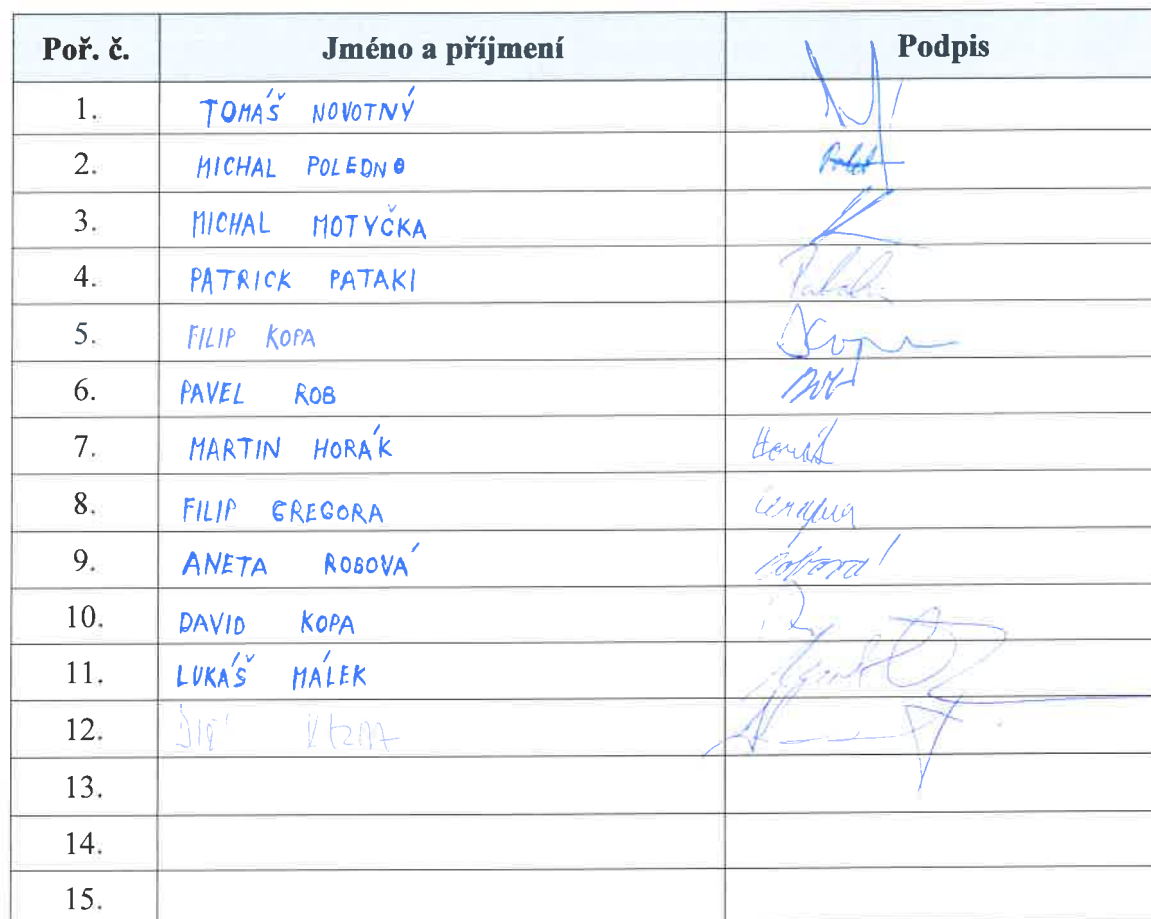 Poř. č. Jméno a příjmení Podpis
1. TOMÁŠ NOVOTNÝ
2. MICHAL POLEDNO
3. MICHAL MOTYČKA
4. PATRICK PATAKI
5. FILIP KOPA
6. PAVEL ROB
7. MARTIN HORÁK Horák
8. FILIP GREGORA
9. ANETA ROBOVÁ
10. DAVID KOPA
11. LUKÁŠ MÁLEK
12.
13.
14.
15.